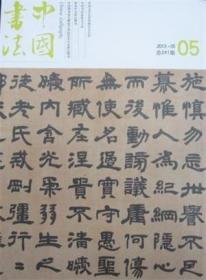 中國書法
2013·05
总241期
05
施慎勿忘世譽不足
慕惟仁為紀綱隱心
而後動謗議庸何傷
無使名過實守愚聖
所臧在涅貴不淄曖
曖內含光柔弱生之
徒老氏誡剛彊行行